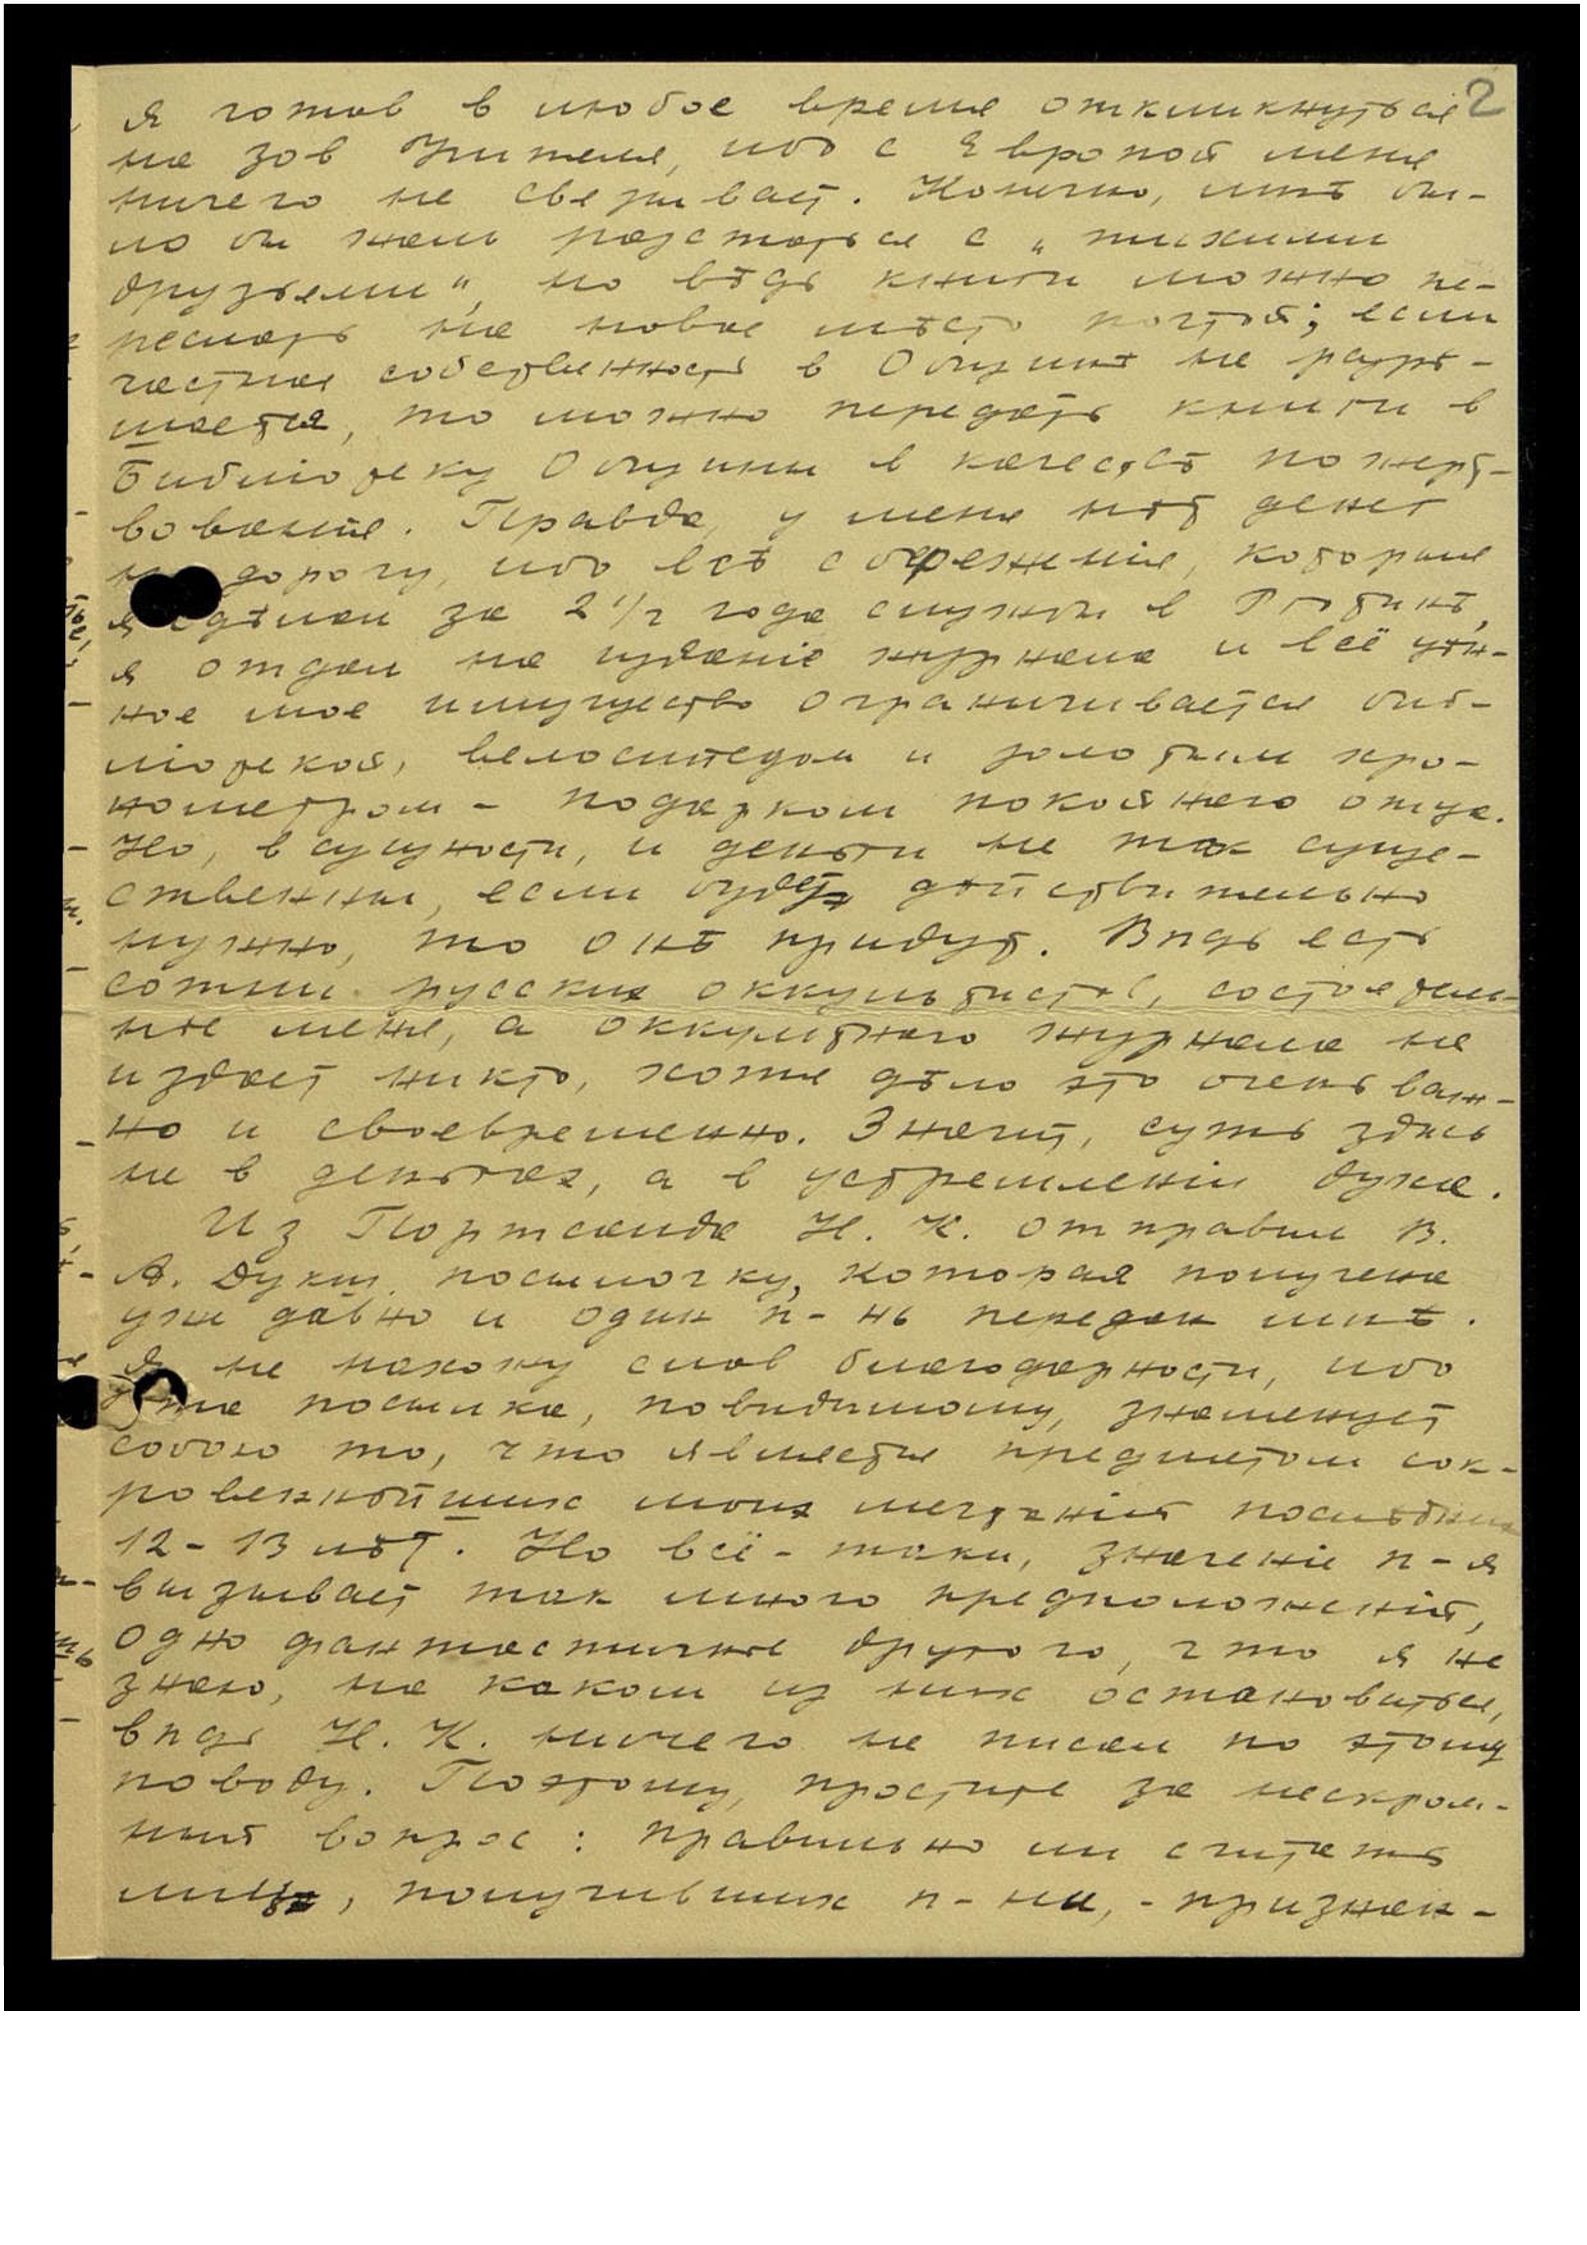 2
я готов в любое время откликнуться
на зов Учителя, ибо с Европой меня
ничего не связывает. Конечно, мнѣ бы-
ло бы жаль разстаться с „тихими
друзьями“, но вѣдь книги можно пе-
реслать на новое мѣсто почтой; если
частная собственность в Общинѣ не разрѣ-
шается, то можно передать книги в
Библіотеку Общины в качествѣ пожерт-
вованія. Правда, у меня нѣт денег
на дорогу, ибо всѣ сбереженія, которыя
я сдѣлал за 2 1/2 года службы в
я отдал на изданіе журнала и всё цѣн-
ное мое имущество ограничивается биб-
ліотекой, велосипедом и золотым хро-
нометром – подарком покойнаго отца.
Но, в сущности, и деньги не так суще-
ственны, если будет дѣйствительно
нужно, то онѣ придут. Вѣдь есть
сотни русских оккультистов, состоятель-
нѣе меня, а оккультнаго журнала не
издает никто, хотя дѣло это очень важ-
но и своевременно. Значит, суть здѣсь
не в деньгах, а в устремленіи духа.
Из Портсаида Н. К. отправил В.
А. Дукшт посылочку, которая получена
уже давно и один п-нь передан мнѣ.
Я не нахожу слов благодарности, ибо
эта посылка, повидимому, знаменует
собою то, что является предметом сок-
ровеннѣйших моих мечтаній послѣдних
12-13 лѣт. Но всё-таки, значеніе п-я
вызывает так много предположеній,
одно фантастичнѣе другого, что я не
знаю, на каком из них остановиться,
вѣдь Н. К. ничего не писал по этому
поводу. Поэтому, простите за нескром-
ный вопрос: правильно ли считать
лиц, получивших п-ни, - признан-